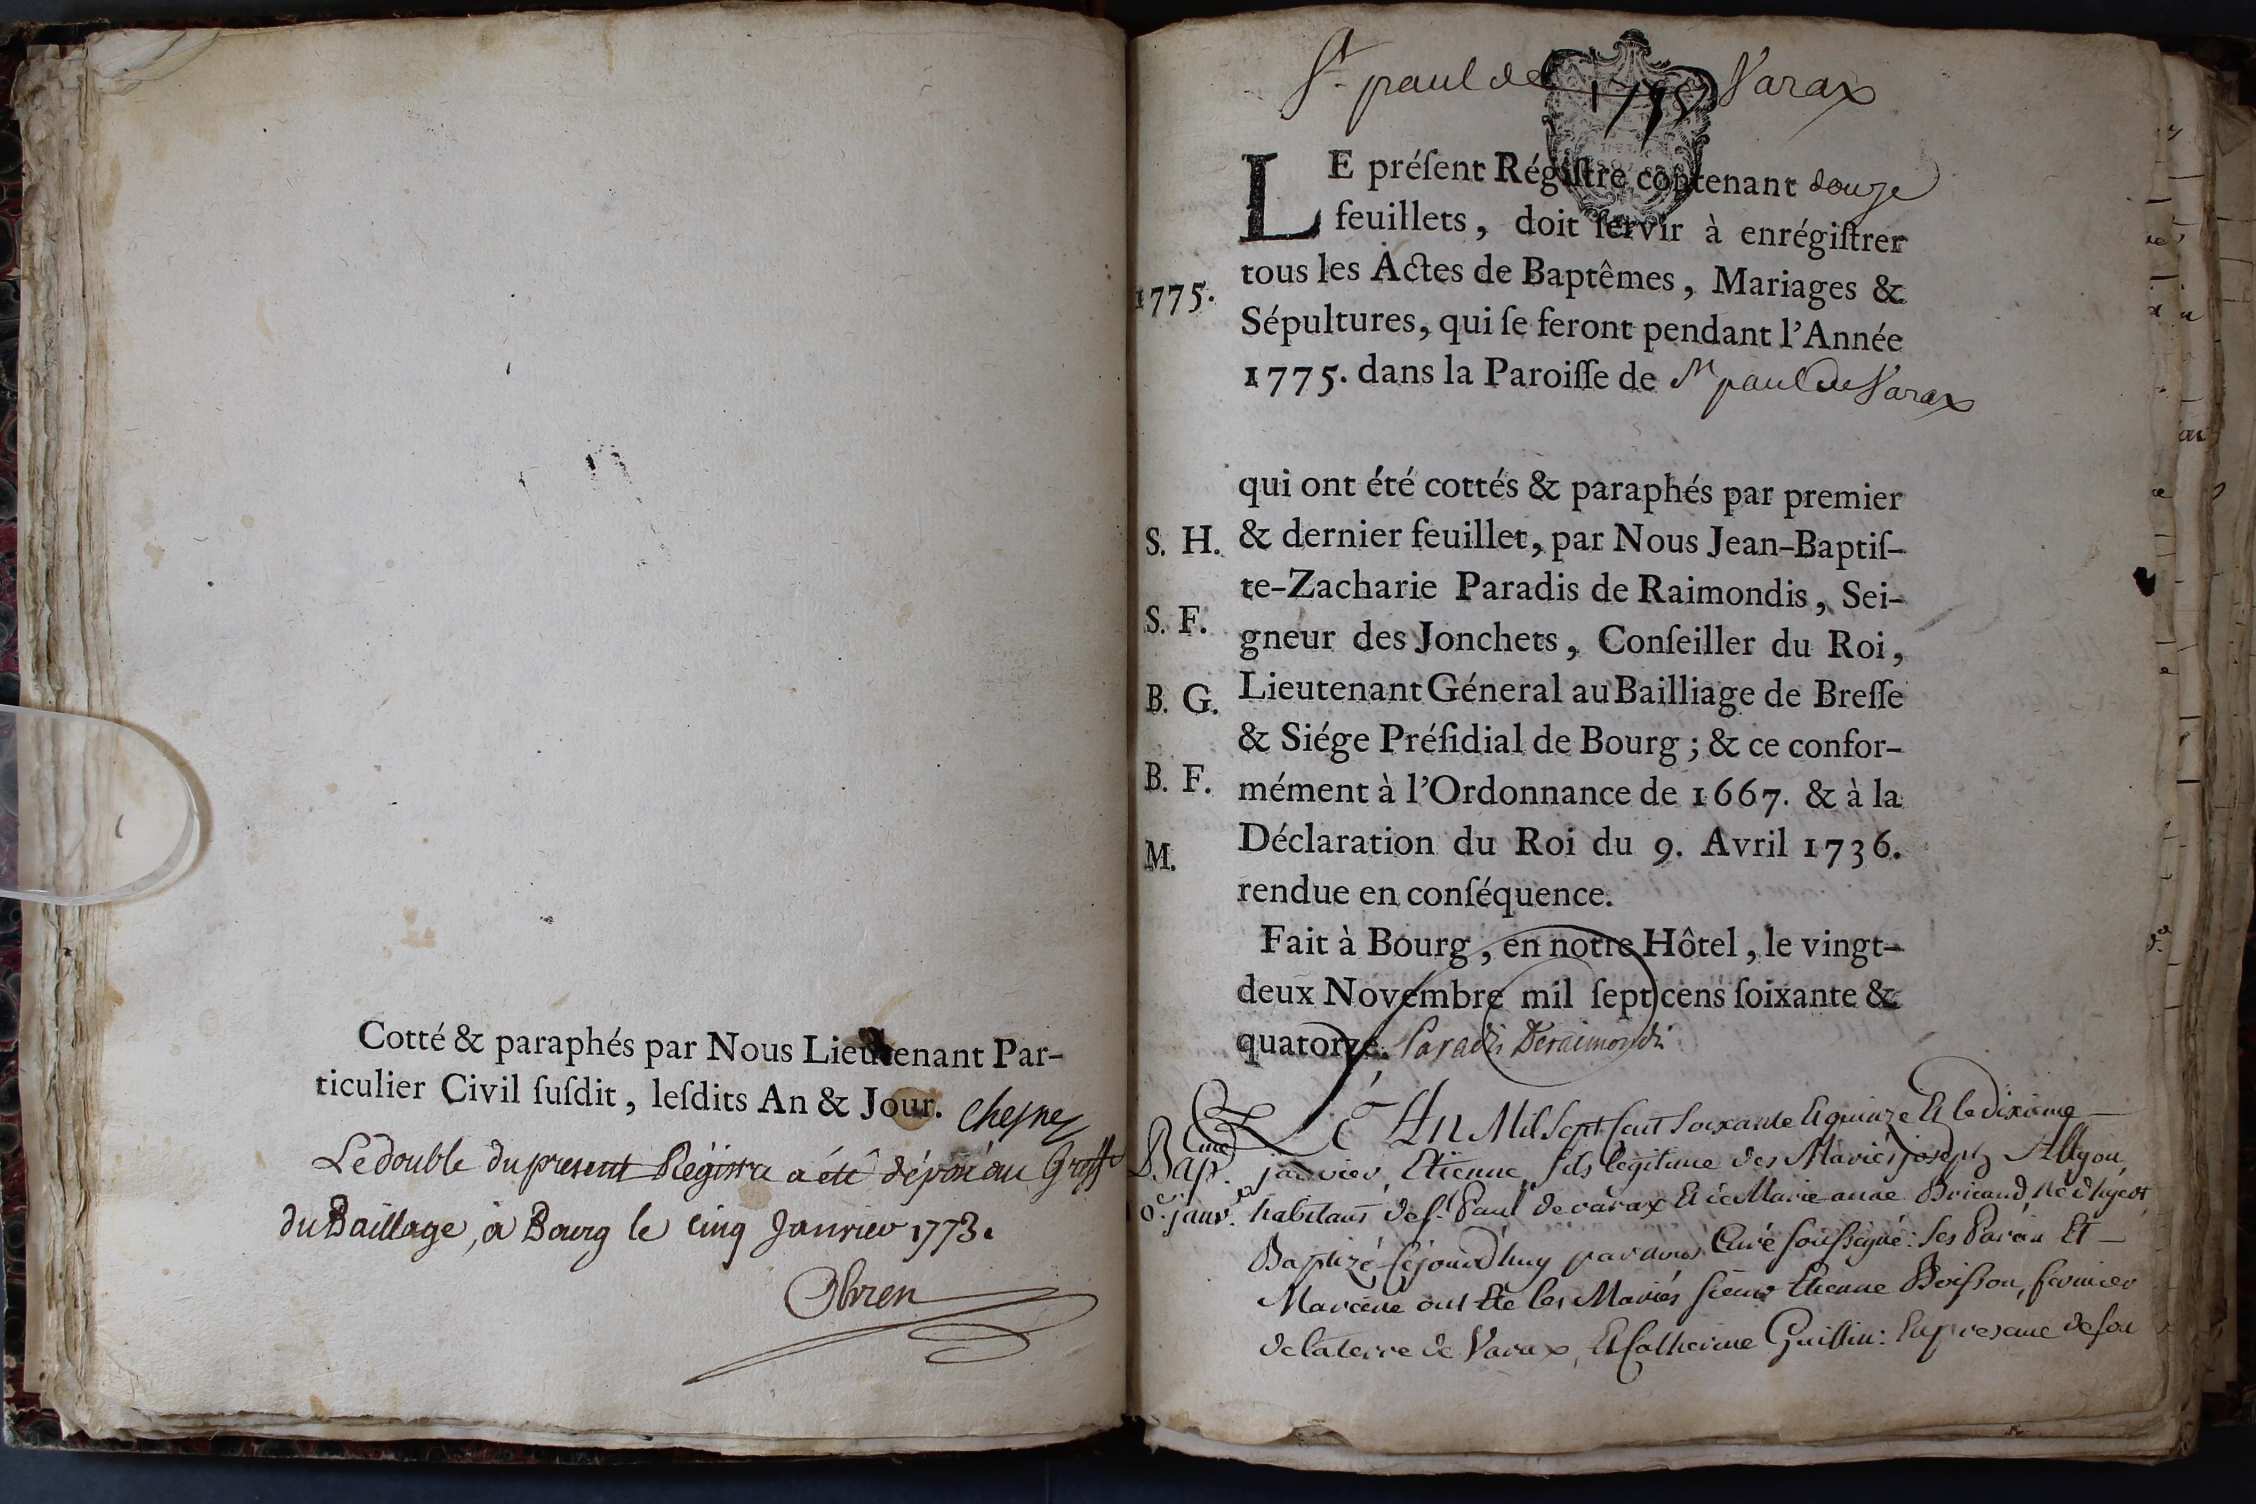 Cotté & paraphés par Nous Lieutenant Par-
ticulier Civil ſuſdit, leſdits An & Jour. Cheſne
Le double du present Régistre a été déposé au Greffe
du Baillage, a Bourg le cinq Janvier 1773.
Obren
St paul de Varax
LE préſent Régiſtre contenant douze
feuillets, doit ſervir à enrégiſtrer
tous les Actes de Baptêmes, Mariages &
1775.
Sépultures, qui ſe feront pendant l'Année
1775. dans la Paroiſſe de St paul de Varax
qui ont été cottés & paraphés par premier
S. H.
& dernier feuillet, par Nous Jean-Baptiſ-
te-Zacharie Paradis de Raimondis, Sei-
S. F.
gneur des Jonchets, Conſeiller du Roi,
B. G.
Lieutenant Géneral au Bailliage de Breſſe
& Siége Préſidial de Bourg; & ce confor-
B. F.
mément à l'Ordonnance de 1667. & à la
M.
Déclaration du Roi du 9. Avril 1736.
rendue en conſéquence.
Fait à Bourg, en notre Hôtel, le vingt-
deux Novembre mil ſept cens ſoixante &
quatorze. Paradis Deraimondi
L'An Mil Sept Cent Soixante Et quinze Et le dixieme
Bap.
janvier, Etienne, fils legitime des Mariés joseph
janv.
habitans de St Paul de varax Et de Marie anne
Baptizé Cejourd'huy par nous Curé soussigné: Ses Parein Et
Mareine ont Eté les Mariés sieur Etienne Boisson, fermier
de la terre de Varax, Et Catherine Guillin: En presence de son